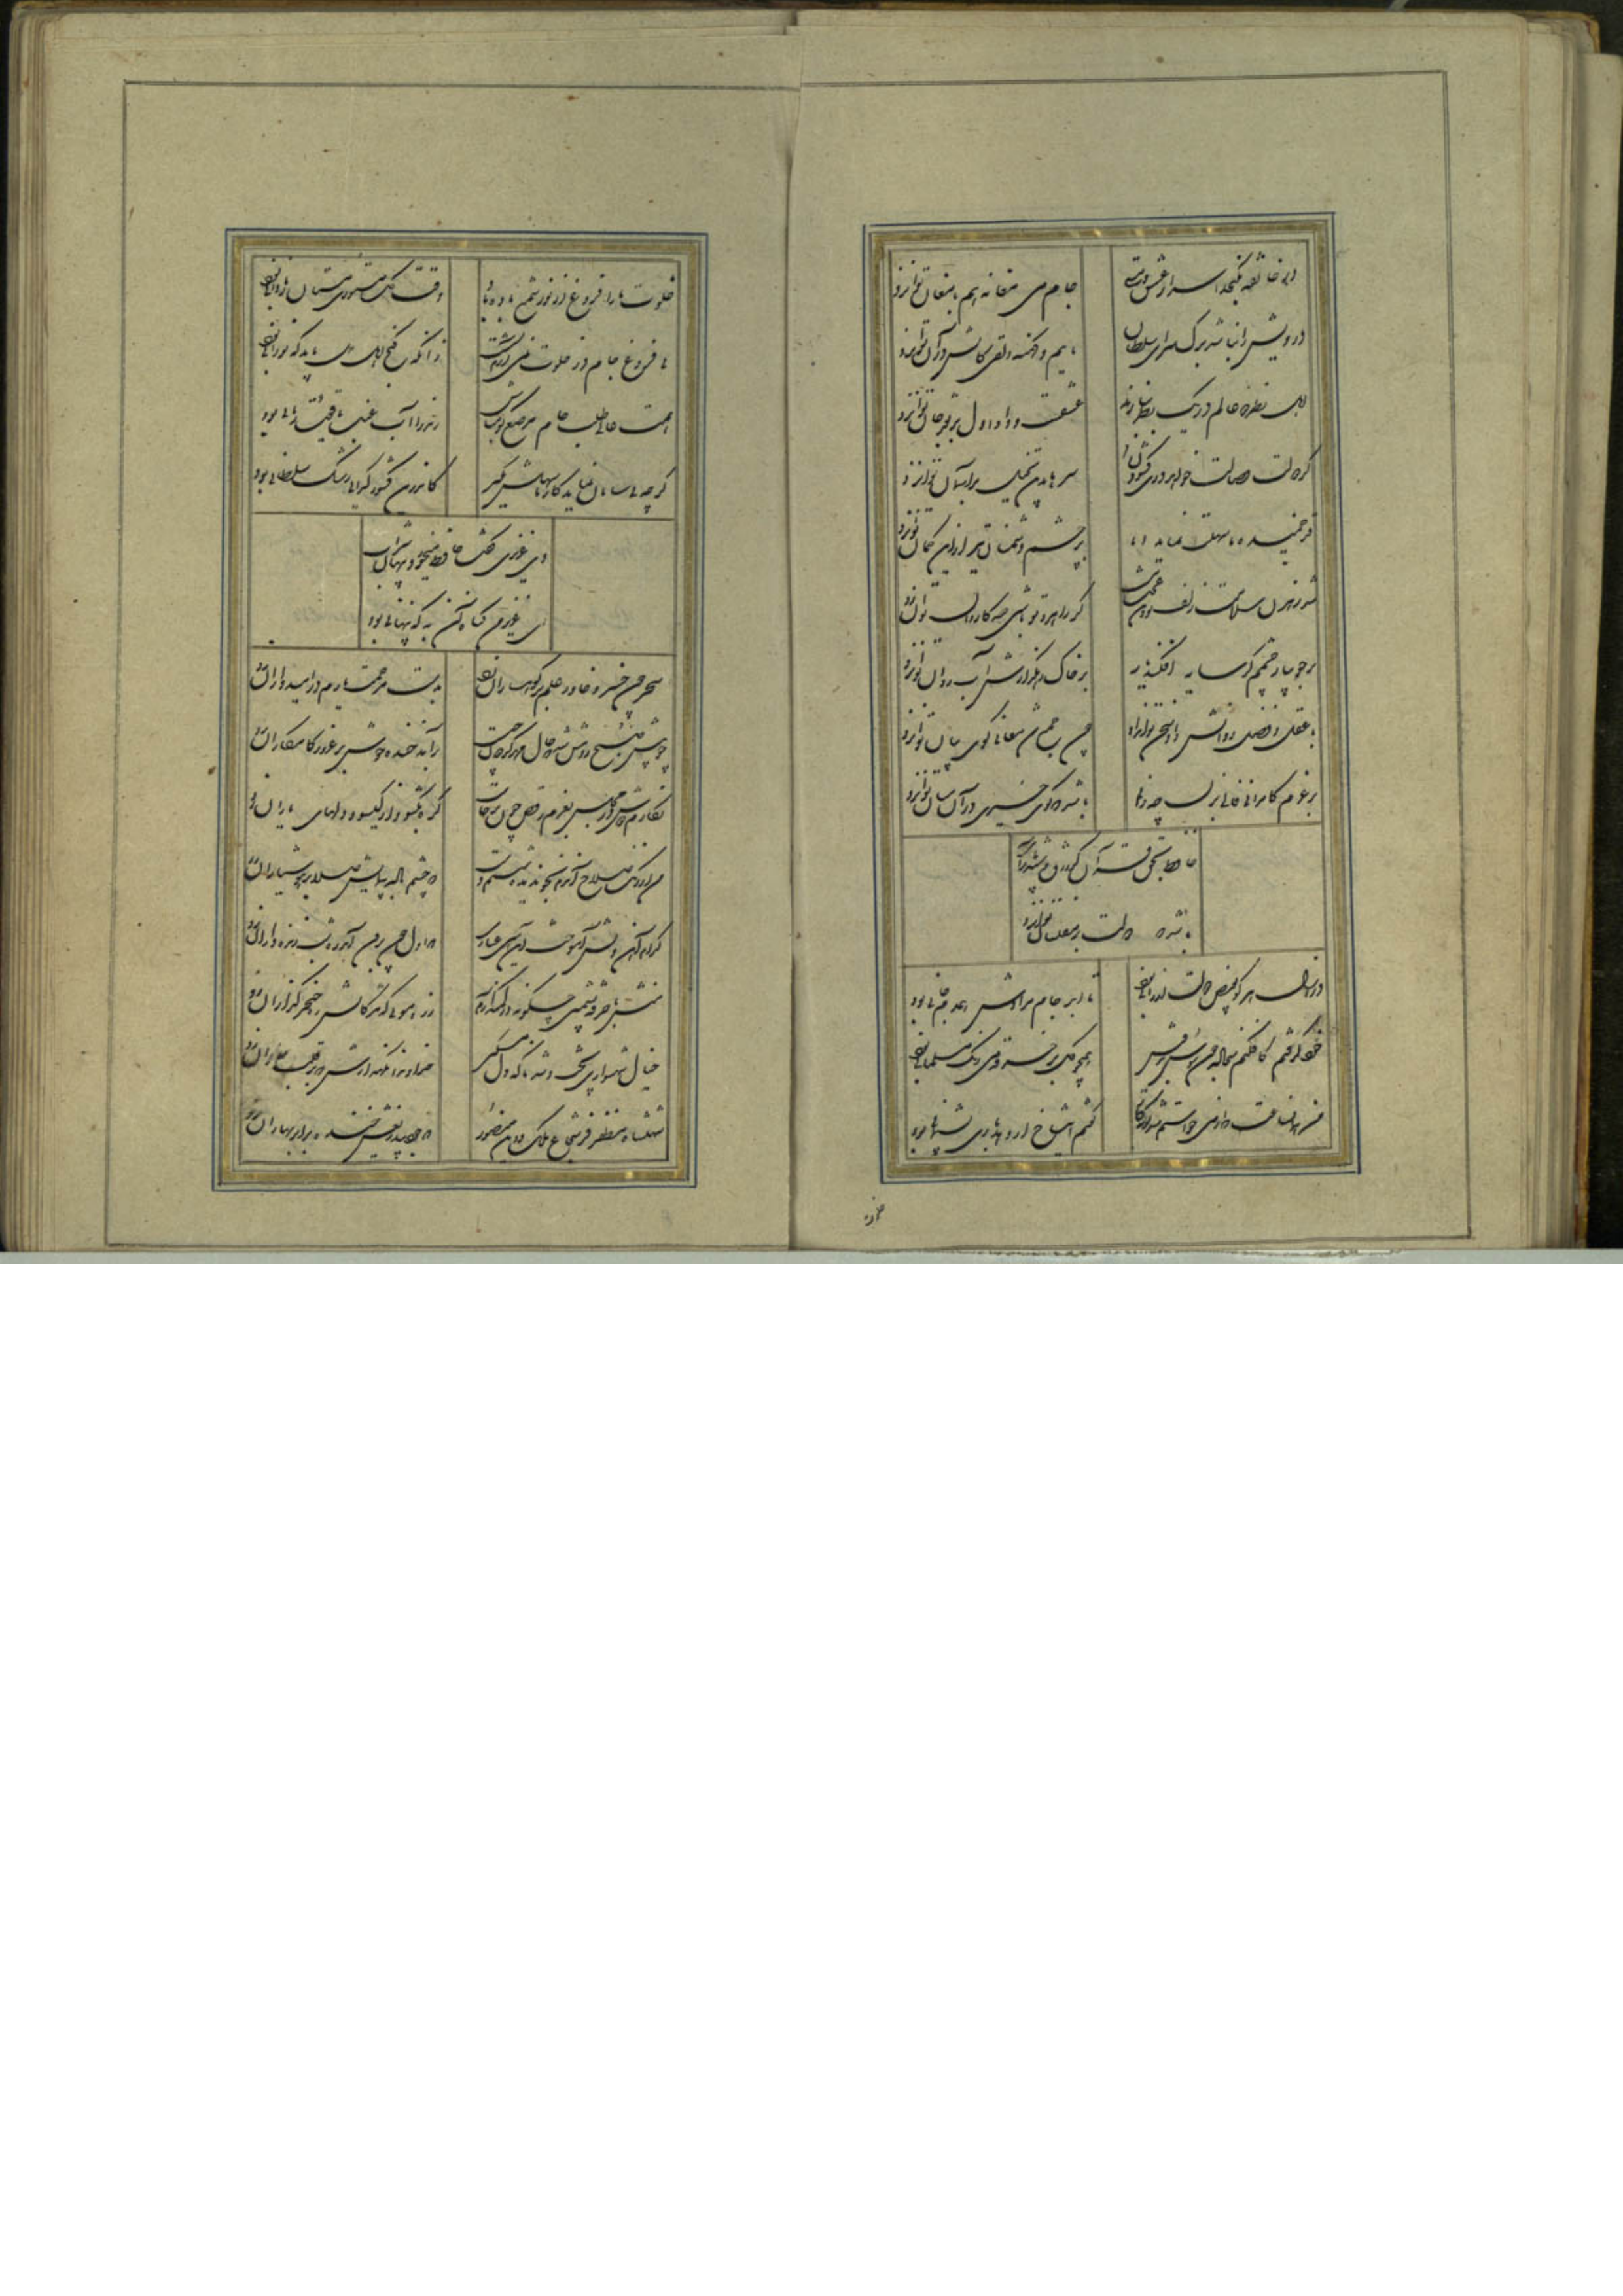 در خانقه نگنجد اسرار عشق و مستی جام می مغانه هم با مغان توان زد
درویش را نباشد برگ سرای سلطان ماییم و کهنه دلقی کاتش در آن توان زد
اهل نظر دو عالم در یک نظر ببازند عشقست و داو اول بر نقد جان توان زد
گر دولت وصالت خواهد دری گشودن سرها بدین تخیل بر آستان توان زد
قد خمیده ما سهلت نماید اما بر چشم دشمنان تیر از این کمان توان زد
شد رهزن سلامت زلف تو وین عجب نیست گر راهزن تو باشی صد کاروان توان زد
بر جویبار چشمم گر سایه افکند یار بر خاک رهگذارش آب روان توان زد
با عقل و فهم و دانش داد سخن توان داد چون جمع شد معانی گوی بیان توان زد
بر عزم کامرانی فالی بزن چه دانی باشد که گوی عیشی در آن میان توان زد
حافظ بحق قرآن کز زرق و شید بازآی
باشد
در ازل هر کو بفیض دولت ارزانی بود تا ابد جام مرادش همدم جانی بود
خود گرفتم کافکنم سجاده چون سوسن بدوش همچو گل بر خرقه رنگ می مسلمانی بود
من همان ساعت که از می خواستم شد توبه کار گفتم این شاخ ار دهد باری پشیمانی بود
خلوت
خلوت ما را فروغ از نور شمع باده باد وقت گل مستوری مستان ز نادانی بود
بی فروغ جام در خلوت نمی یارم نشست زانکه کنج اهل دل باید که نورانی بود
همت عالی طلب جام مرصع گو مباش رند را آب عنب یاقوت رمانی بود
گر چه بی سامان نماید کار ما سهلش مبین کاندرین کشور گدایی رشک سلطانی بود
دی عزیزی گفت حافظ میخورد پنهان شراب
ای عزیز من گناه آن به که پنهانی بود
سحر چون خسرو خاور علم بر کوهساران زد بدست مرحمت یارم در امیدواران زد
چو پیش صبح روشن شد که حال مهر گردون چیست برآمد خنده خوش بر غرور کامکاران زد
نگارم دوش در مجلس بعزم رقص چون برخاست گره بگشود از گیسو و بر دلهای یاران زد
من از رنگ صلاح آندم بخون دیده شستم دست که چشم باده پیمایش صلا بر هوشیاران زد
کدام آهن دلش آموخت این آیین عیاری کز اول چون برون آمد ره شب زنده داران زد
منش با خرقه پشمین کجا اندر کمند آرم زره مویی که مژگانش ره خنجر گزاران زد
خیال شهسواری پخت و شد ناگه دل مسکین خداوندا نگهدارش که بر قلب سواران زد
شهنشاه مظفر فر شجاع ملک و دین منصور که جود بیدریغش خنده بر ابر بهاران زد